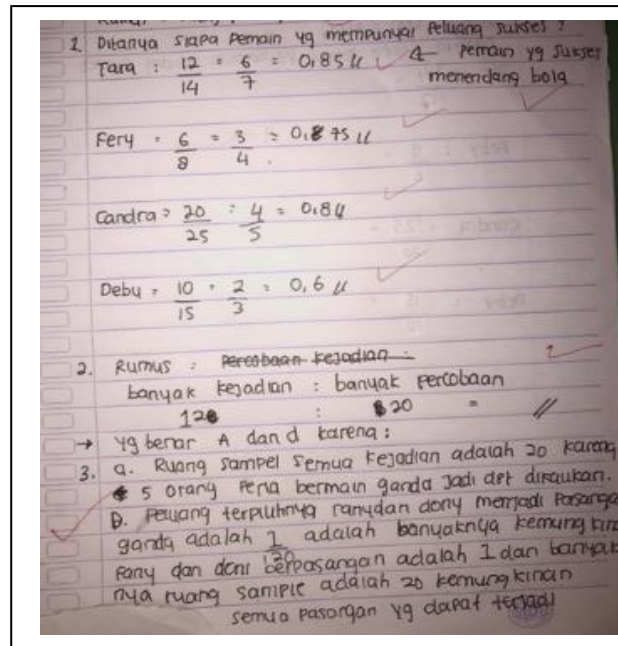 1. Ditanya siapa pemain yg mempunyai peluang sukses?
Tara : 12/14 = 6/7 = 0,85 // ← pemain yg sukses
menendang bola
Fery = 6/8 = 3/4 = 0,75 //
Candra = 20/25 = 4/5 = 0,8 //
Debu = 10/15 = 2/3 = 0,6 //
2. Rumus : percobaan kejadian =
banyak kejadian : banyak percobaan
12 : 20 = //
→ yg benar A dan d karena :
3. a. Ruang sampel semua kejadian adalah 20 karena
5 orang bermain ganda jadi dpt
B. Peluang dony menjadi
ganda adalah 1/20 adalah banyaknya
dan doni berpasangan adalah 1 dan banyak
nya ruang sample adalah 20 kemungkinan
semua pasangan yg dapat terjadi